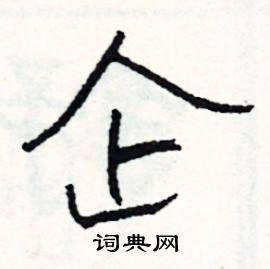 企
词典网